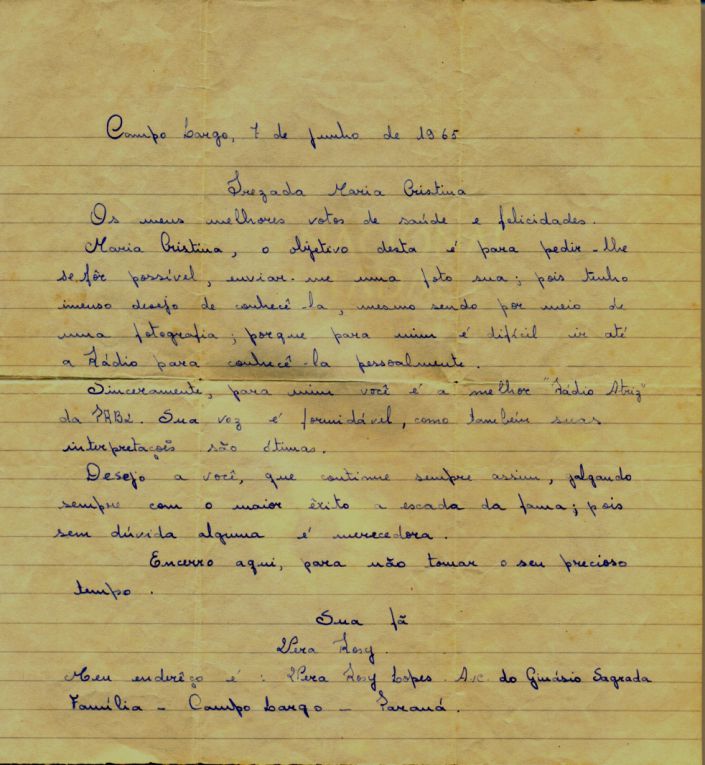 Campo Largo, 7 de junho de 1965
Prezada Maria Cristina
Os meus melhores votos de saúde e felicidades.
Maria Cristina, o objetivo desta é para pedir-lhe
se fôr possível, enviar-me uma foto sua; pois tenho
imenso desejo de conhecê-la, mesmo sendo por meio de
uma fotografia; porque para mim é difícil ir até
a Rádio para conhecê-la pessoalmente.
Sinceramente, para mim você é a melhor "Rádio Atriz"
da PRB2. Sua voz é formidável, como também suas
interpretações são ótimas.
Desejo a você, que continue sempre assim, galgando
sempre com o maior êxito a escada da fama; pois
sem dúvida alguma é merecedora.
Encerro aqui, para não tomar o seu precioso
tempo.
Sua fã
Vera Rosy.
Meu enderêço é: Vera Rosy Lopes. A/c. do Ginásio Sagrada
Família - Campo Largo - Paraná.